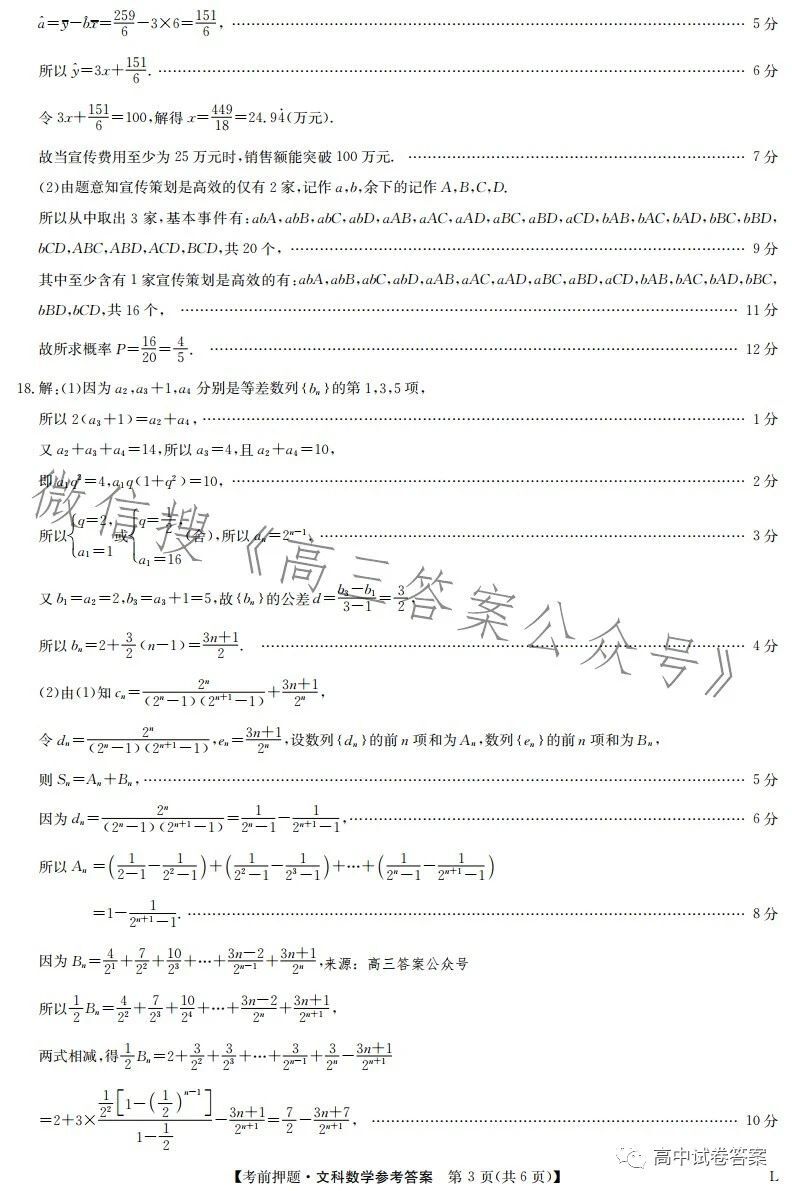 â=ȳ-b̂x̄=259/6-3×6=151/6, …… 5分
所以ŷ=3x+151/6. …… 6分
令3x+151/6=100,解得x=449/18=24.94̇(万元).
故当宣传费用至少为25万元时,销售额能突破100万元. …… 7分
(2)由题意知宣传策划是高效的仅有2家,记作a,b,余下的记作A,B,C,D.
所以从中取出3家,基本事件有:abA,abB,abC,abD,aAB,aAC,aAD,aBC,aBD,aCD,bAB,bAC,bAD,bBC,bBD,
bCD,ABC,ABD,ACD,BCD,共20个, …… 9分
其中至少含有1家宣传策划是高效的有:abA,abB,abC,abD,aAB,aAC,aAD,aBC,aBD,aCD,bAB,bAC,bAD,bBC,
bBD,bCD,共16个, …… 11分
故所求概率P=16/20=4/5. …… 12分
18.解:(1)因为a₂,a₃+1,a₄分别是等差数列{bₙ}的第1,3,5项,
所以2(a₃+1)=a₂+a₄, …… 1分
又a₂+a₃+a₄=14,所以a₃=4,且a₂+a₄=10,
即a₁q²=4,a₁q(1+q²)=10, …… 2分
所以{q=2, a₁=1 或{q=1/2, a₁=16 (舍),所以aₙ=2ⁿ⁻¹, …… 3分
又b₁=a₂=2,b₃=a₃+1=5,故{bₙ}的公差d=(b₃-b₁)/(3-1)=3/2,
所以bₙ=2+3/2(n-1)=(3n+1)/2. …… 4分
(2)由(1)知cₙ=2ⁿ/((2ⁿ-1)(2ⁿ⁺¹-1))+(3n+1)/2ⁿ,
令dₙ=2ⁿ/((2ⁿ-1)(2ⁿ⁺¹-1)),eₙ=(3n+1)/2ⁿ,设数列{dₙ}的前n项和为Aₙ,数列{eₙ}的前n项和为Bₙ,
则Sₙ=Aₙ+Bₙ, …… 5分
因为dₙ=2ⁿ/((2ⁿ-1)(2ⁿ⁺¹-1))=1/(2ⁿ-1)-1/(2ⁿ⁺¹-1), …… 6分
所以Aₙ=(1/(2-1)-1/(2²-1))+(1/(2²-1)-1/(2³-1))+…+(1/(2ⁿ-1)-1/(2ⁿ⁺¹-1))
=1-1/(2ⁿ⁺¹-1). …… 8分
因为Bₙ=4/2¹+7/2²+10/2³+…+(3n-2)/2ⁿ⁻¹+(3n+1)/2ⁿ,来源:高三答案公众号
所以1/2Bₙ=4/2²+7/2³+10/2⁴+…+(3n-2)/2ⁿ+(3n+1)/2ⁿ⁺¹,
两式相减,得1/2Bₙ=2+3/2²+3/2³+…+3/2ⁿ⁻¹+3/2ⁿ-(3n+1)/2ⁿ⁺¹
=2+3×(1/2²[1-(1/2)ⁿ⁻¹])/(1-1/2)-(3n+1)/2ⁿ⁺¹=7/2-(3n+7)/2ⁿ⁺¹, …… 10分
微信搜《高三答案公众号》
高中试卷答案
【考前押题·文科数学参考答案 第3页(共6页)】 L